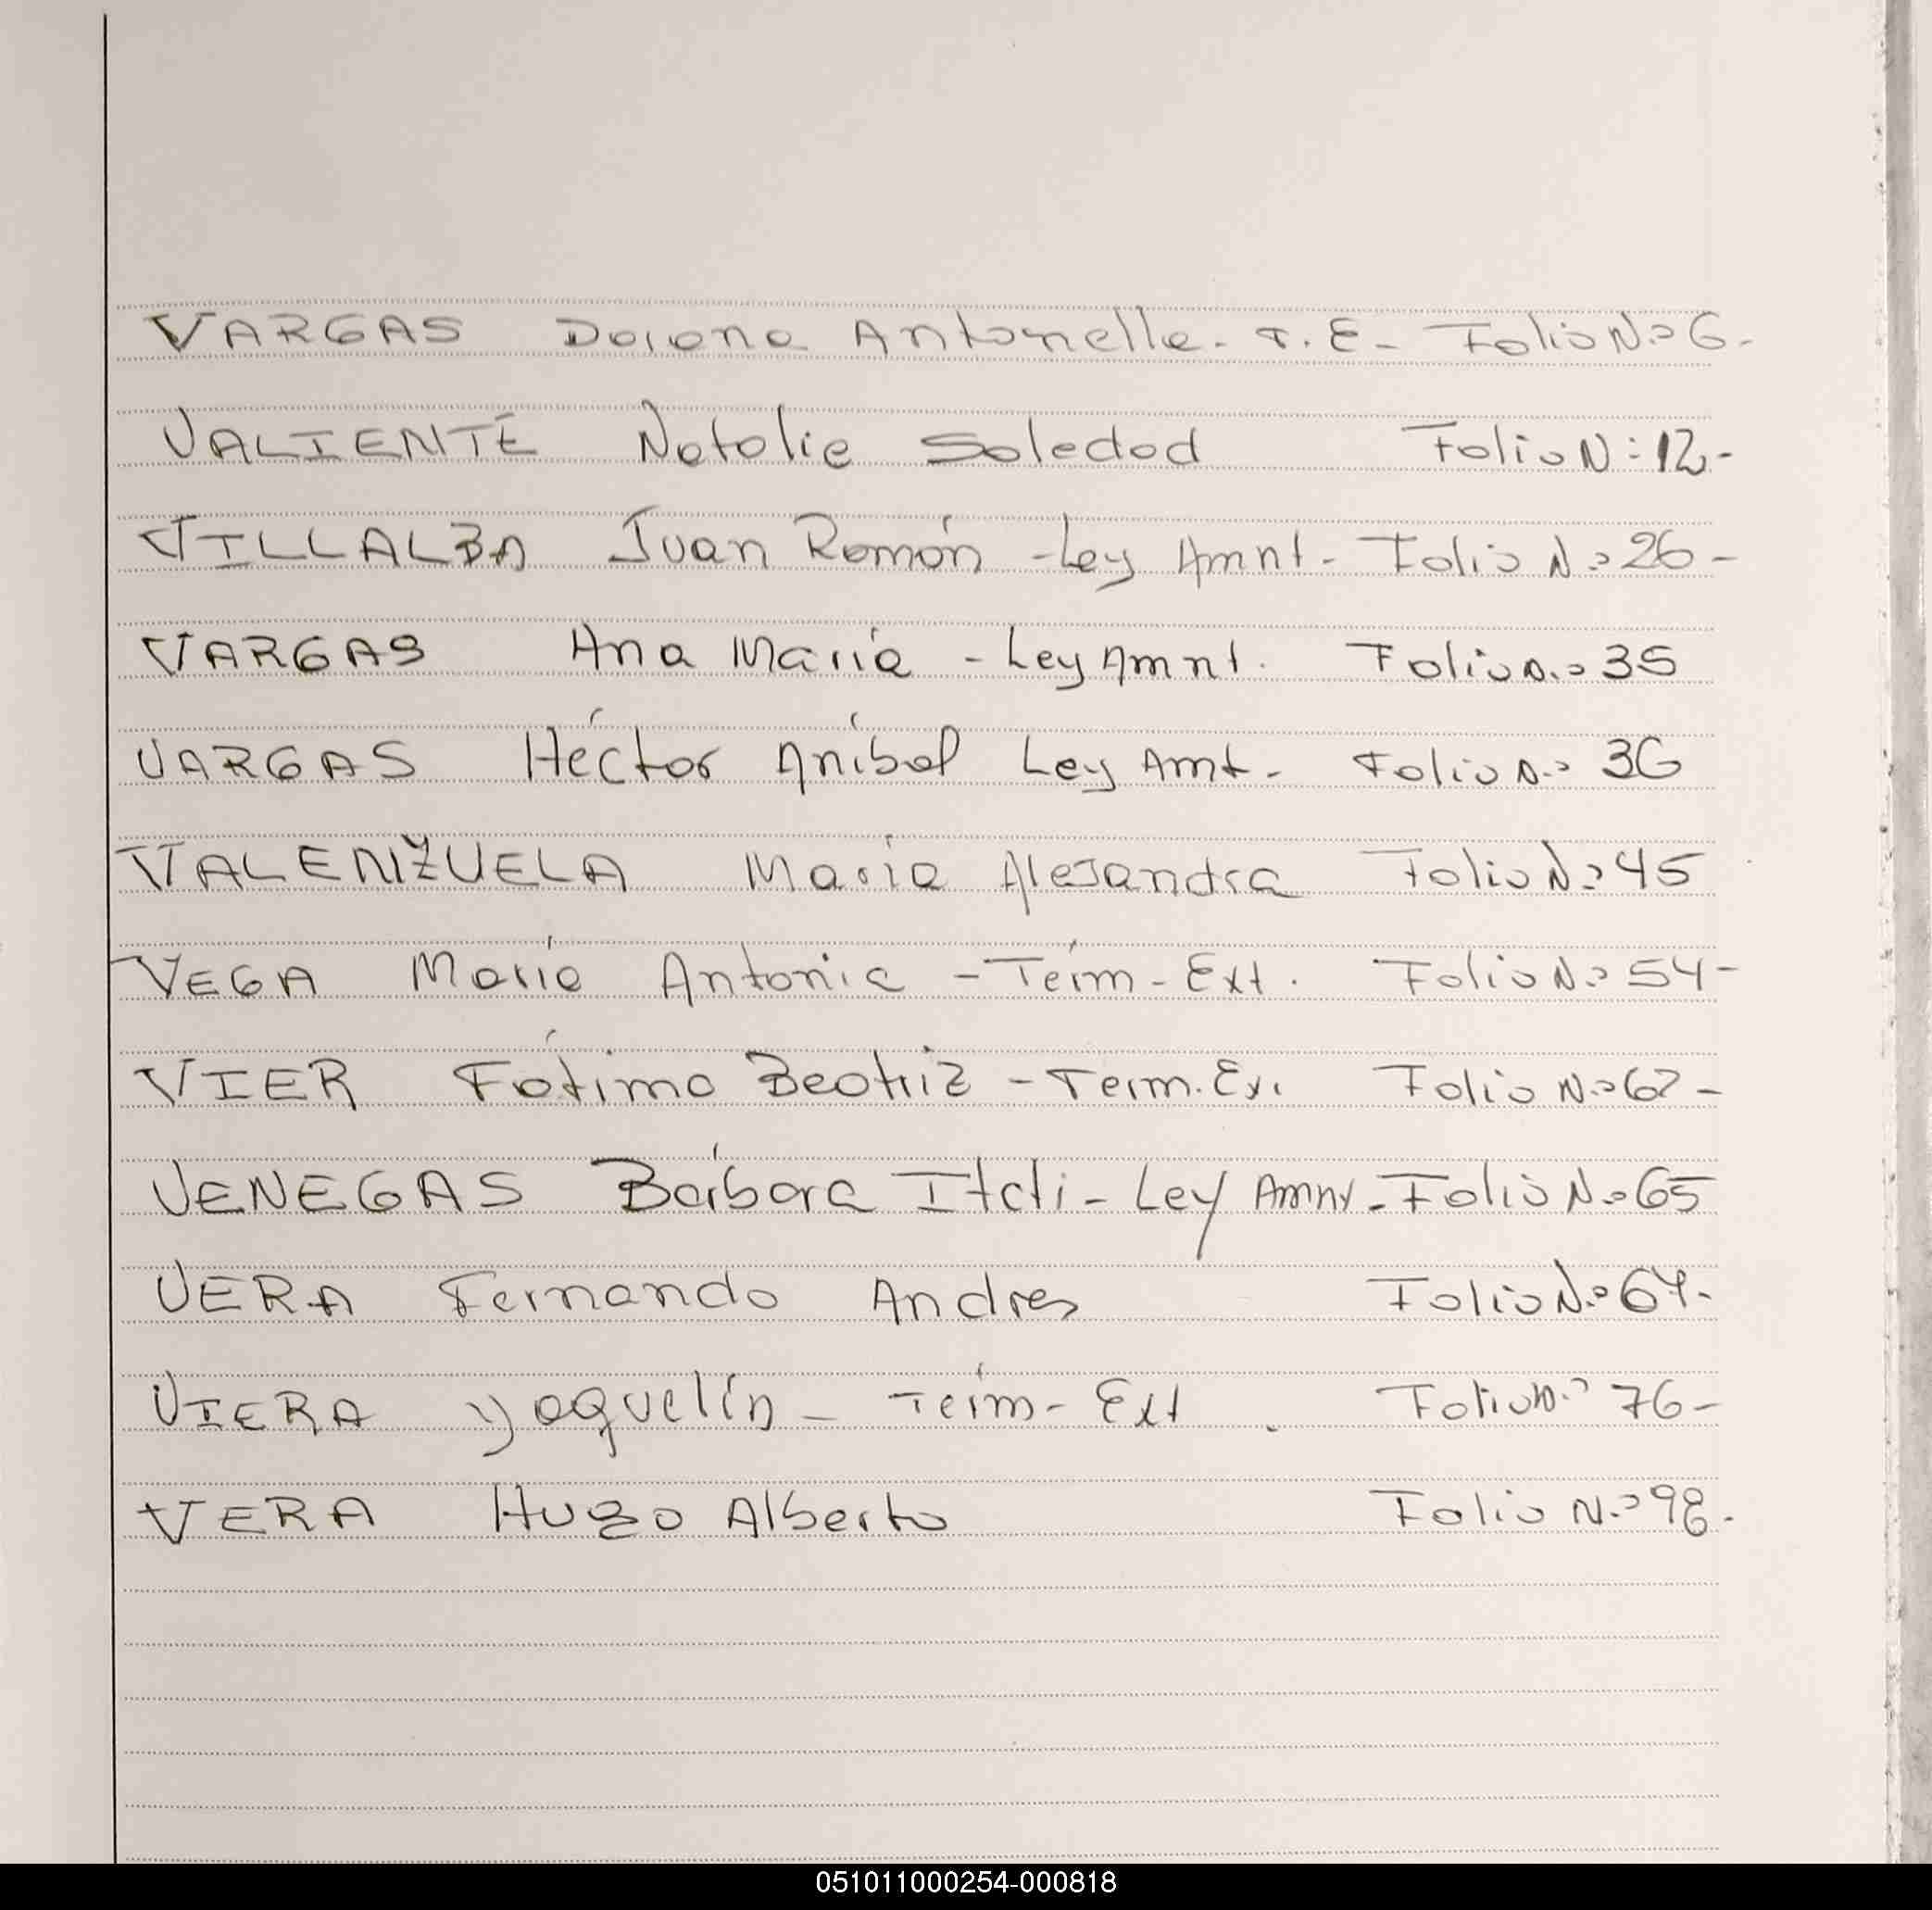 VARGAS Daiana Antonella - T. E - Folio N.º 6 -
VALIENTE Natalia Soledad Folio N: 12 -
VILLALBA Juan Ramón - Ley Amnt - Folio N.º 26 -
VARGAS Ana María - Ley Amnt. Folio N.º 35
VARGAS Héctor Aníbal Ley Amt - Folio N.º 36
VALENZUELA María Alejandra Folio N.º 45
VEGA María Antonia - Térm - Ext. Folio N.º 54 -
VIER Fátima Beatriz - Term. Ex. Folio N.º 62 -
VENEGAS Bárbara Itatí - Ley Amnt - Folio N.º 65
VERA Fernando Andres Folio N.º 67 -
VIERA Yaquelín - Térm - Ext. Folio N.º 76 -
VERA Hugo Alberto Folio N.º 98 -
051011000254-000818